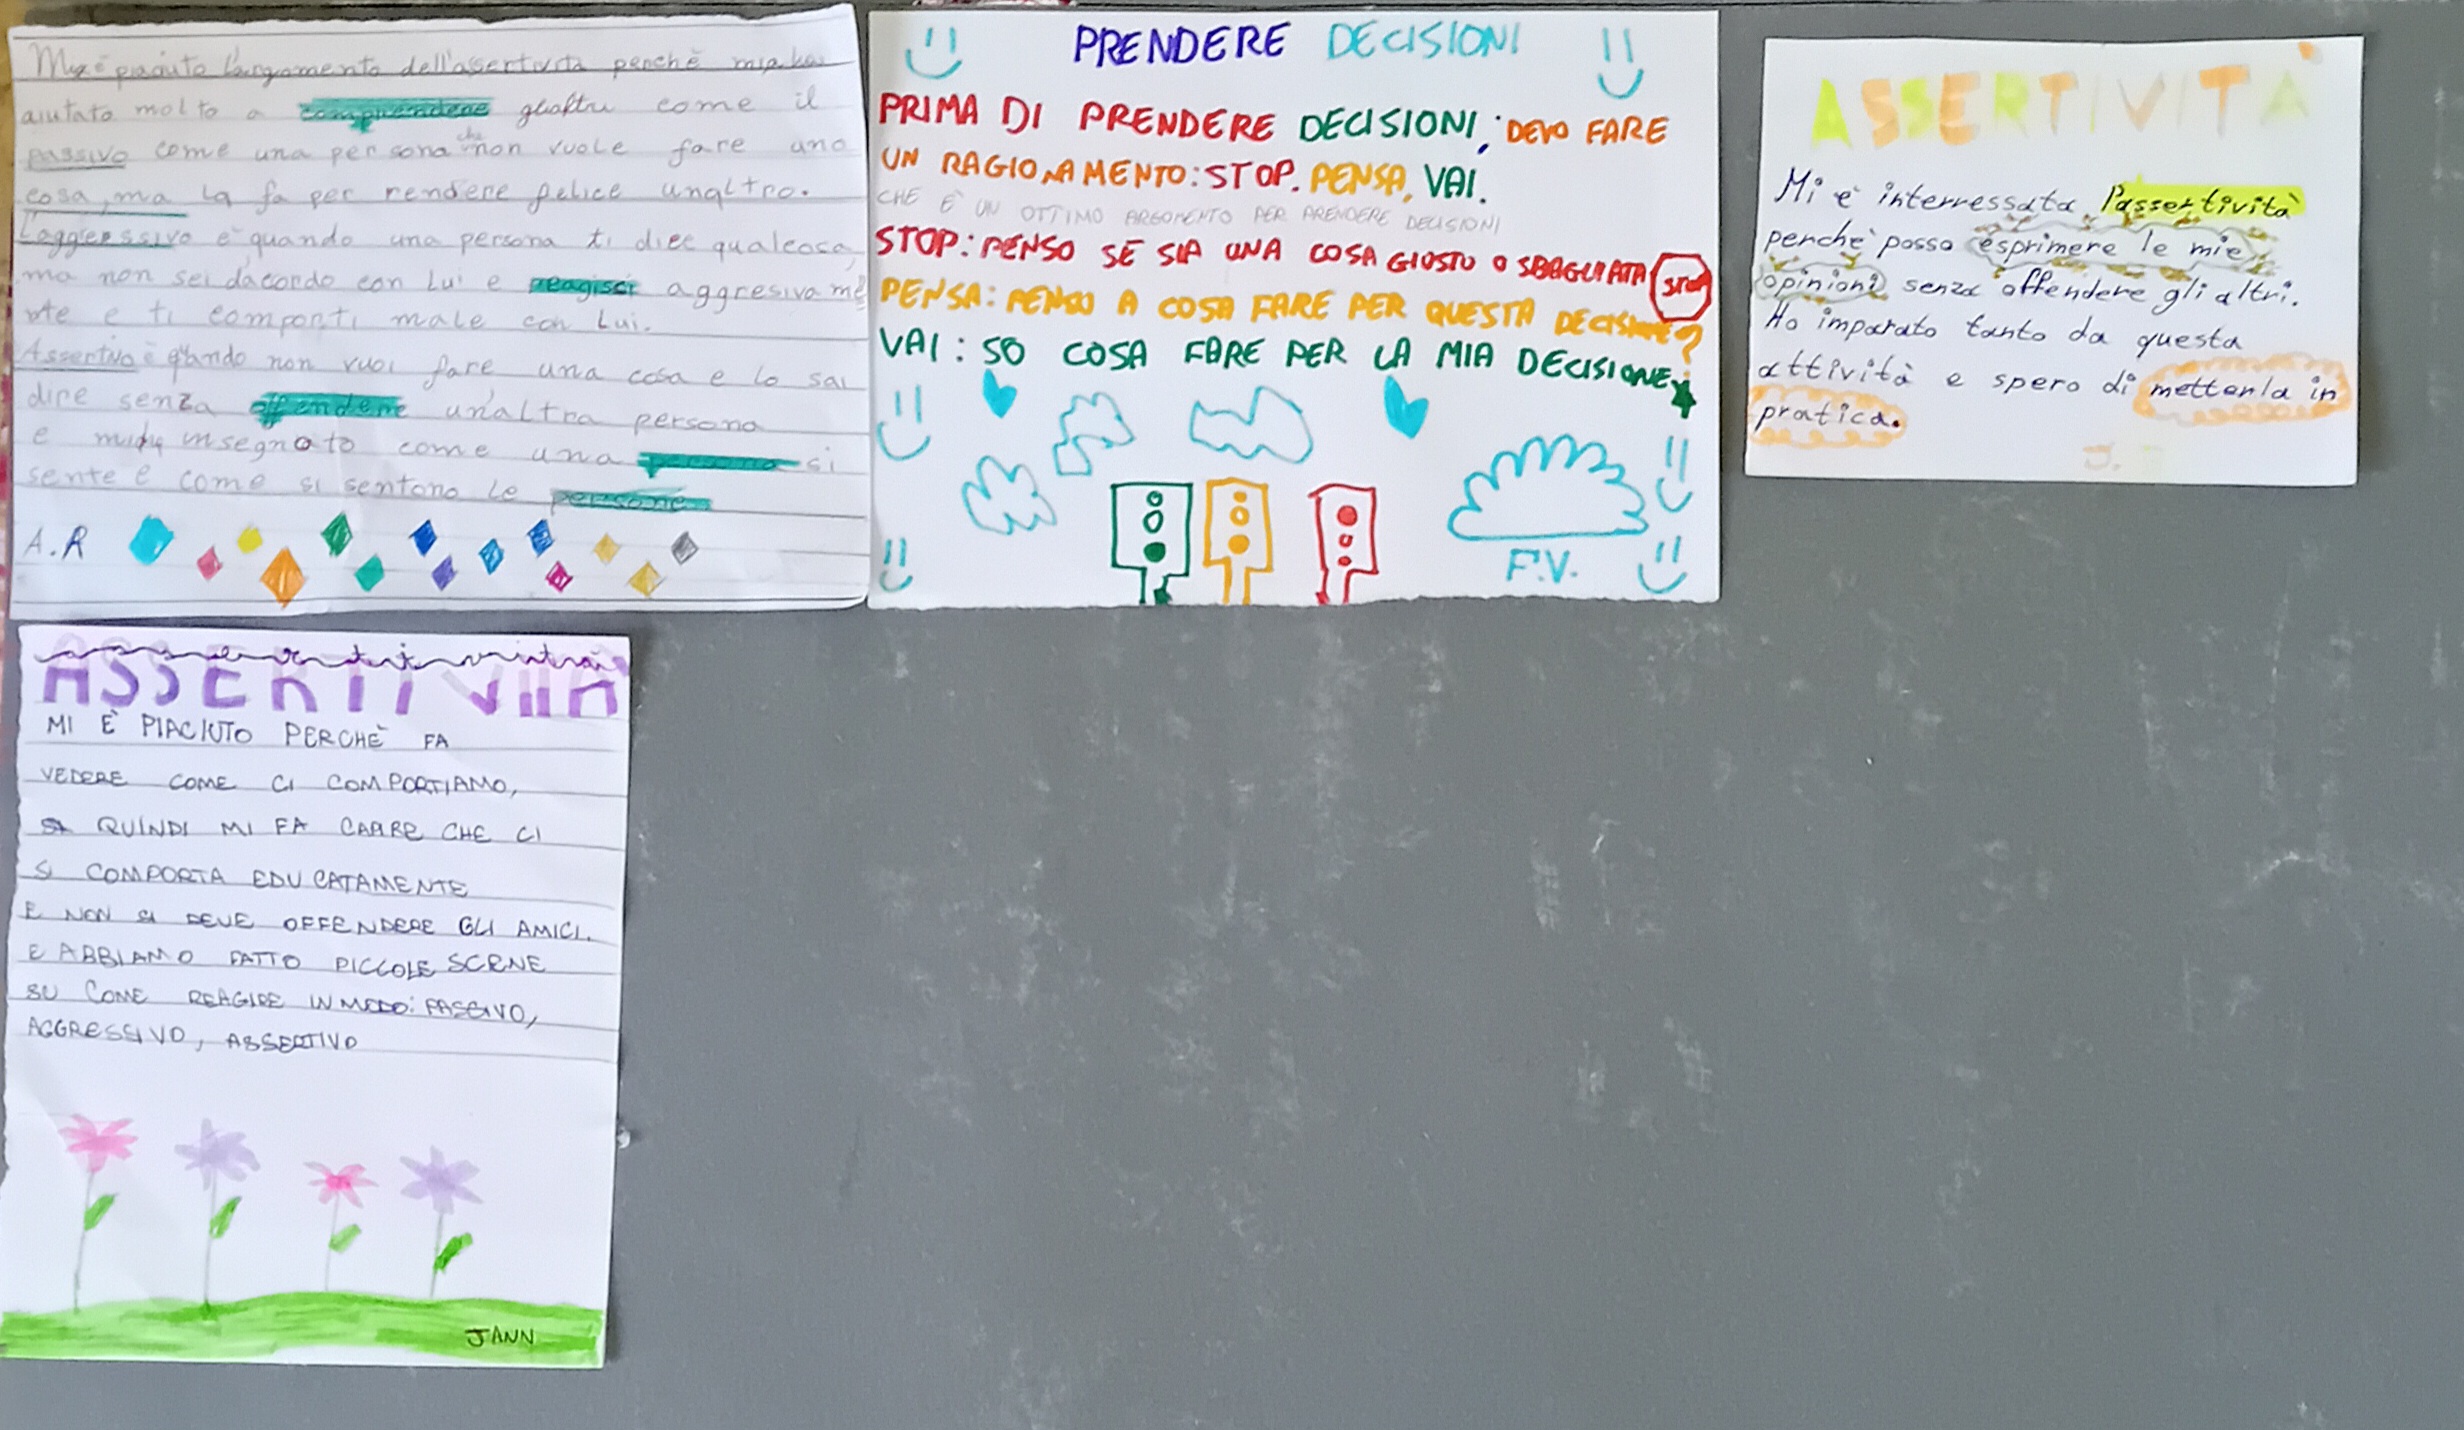 Mi è piaciuto l'argomento dell'assertività perchè mi ha
aiutato molto a comprendere come il
passivo come una persona che non vuole fare una
cosa, ma la fa per rendere felice unaltro.
L'aggressivo è quando una persona ti dice qualcosa,
ma non sei dacordo con lui e reagisci aggresivame
nte e ti comporti male con lui.
Assertivo è quando non vuoi fare una cosa e lo sai
dire senza offendere un'altra persona
e insegnato come una persona si
sente e come si sentono le persone
A.R
PRENDERE DECISIONI
PRIMA DI PRENDERE DECISIONI, DEVO FARE
UN RAGIONAMENTO: STOP. PENSA, VAI.
CHE È UN OTTIMO ARGOMENTO PER PRENDERE DECISIONI
STOP: PENSO SE SIA UNA COSA GIUSTO O SBAGLIATA STOP
PENSA: PENSO A COSA FARE PER QUESTA DECISIONE?
VAI: SO COSA FARE PER LA MIA DECISIONE
F.V.
ASSERTIVITÀ
Mi è interressata l'assertività
perchè posso esprimere le mie
opinioni senza offendere gli altri.
Ho imparato tanto da questa
attività e spero di metterla in
pratica.
J.
assertività
ASSERTIVITÀ
MI È PIACIUTO PERCHÈ FA
VEDERE COME CI COMPORTIAMO,
QUINDI MI FA CAPIRE CHE CI
SI COMPORTA EDUCATAMENTE
E NON SI DEVE OFFENDERE GLI AMICI.
E ABBIAMO FATTO PICCOLE SCENE
SU COME REAGIRE IN MODO: PASSIVO,
AGGRESSIVO, ASSERTIVO
JANN